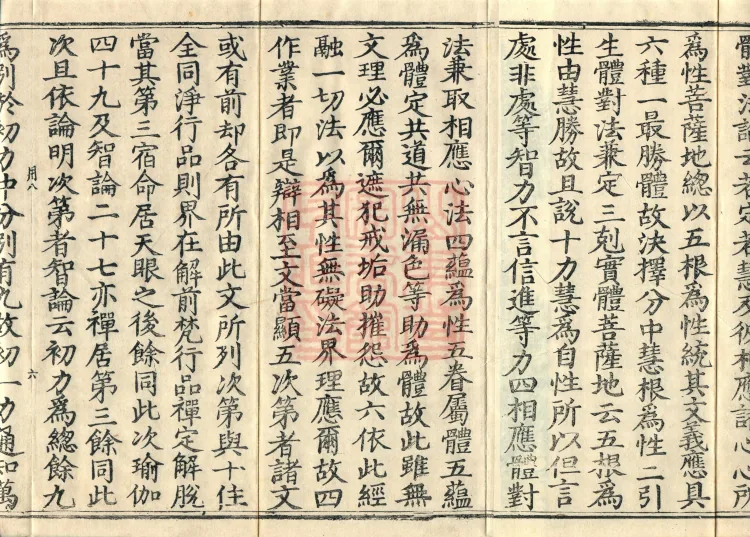 體對法論云若定若慧及彼相應諸心心所
為性菩薩地總以五根為性統其文義應具
六種一最勝體故決擇分中慧根為性二引
生體對法兼定三剋實體菩薩地云五根為
性由慧勝故且說十力慧為自性所以但言
處非處等智力不言信進等力四相應體對
法兼取相應心法四蘊為性五眷屬體五蘊
為體定共道共無漏色等助為體故此雖無
文理必應爾遮犯戒垢助摧怨故六依此經
融一切法以為其性無礙法界理應爾故四
作業者即是辯相至文當顯五次第者諸文
或有前却各有所由此文所列次第與十住
全同淨行品則界在解前梵行品禪定解脫
當其第三宿命居天眼之後餘同此次瑜伽
四十九及智論二十七亦禪居第三餘同此
次且依論明次第者智論云初力為總餘九
用八 六
為別於初力中分別有九故初一力通知萬